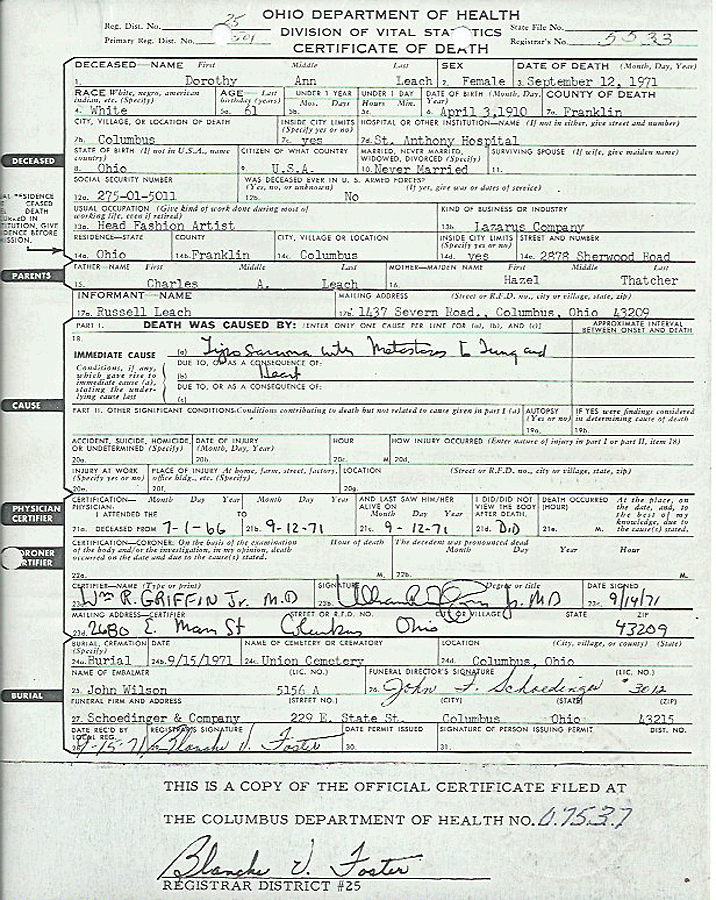 OHIO DEPARTMENT OF HEALTH
Reg. Dist. No. 25 DIVISION OF VITAL STATISTICS State File No.
Primary Reg. Dist. No. CERTIFICATE OF DEATH Registrar's No. 5533
DECEASED—NAME First Middle Last SEX DATE OF DEATH (Month, Day, Year)
1. Dorothy Ann Leach 2. Female 3. September 12, 1971
RACE White, negro, american indian, etc. (Specify) AGE—Last birthday (years) UNDER 1 YEAR Mos. Days UNDER 1 DAY Hours Min. DATE OF BIRTH (Month, Day, Year) COUNTY OF DEATH
4. White 5a. 61 5b. 5c. 6. April 3,1910 7a. Franklin
CITY, VILLAGE, OR LOCATION OF DEATH INSIDE CITY LIMITS (Specify yes or no) HOSPITAL OR OTHER INSTITUTION—NAME (If not in either, give street and number)
7b. Columbus 7c. yes 7d. St. Anthony Hospital
DECEASED
STATE OF BIRTH (If not in U.S.A., name country) CITIZEN OF WHAT COUNTRY MARRIED, NEVER MARRIED, WIDOWED, DIVORCED (Specify) SURVIVING SPOUSE (If wife, give maiden name)
8. Ohio 9. U.S.A. 10. Never Married 11.
SOCIAL SECURITY NUMBER WAS DECEASED EVER IN U.S. ARMED FORCES? (Yes, no, or unknown) (If yes, give war or dates of service)
12a. 275-01-5011 12b. No
USUAL OCCUPATION (Give kind of work done during most of working life, even if retired) KIND OF BUSINESS OR INDUSTRY
13a. Head Fashion Artist 13b. Lazarus Company
RESIDENCE—STATE COUNTY CITY, VILLAGE OR LOCATION INSIDE CITY LIMITS (Specify yes or no) STREET AND NUMBER
14a. Ohio 14b. Franklin 14c. Columbus 14d. yes 14e. 2878 Sherwood Road
PARENTS
FATHER—NAME First Middle Last MOTHER—MAIDEN NAME First Middle Last
15. Charles A. Leach 16. Hazel Thatcher
INFORMANT—NAME MAILING ADDRESS (Street or R.F.D. no., city or village, state, zip)
17a. Russell Leach 17b. 1437 Severn Road., Columbus, Ohio 43209
PART I. DEATH WAS CAUSED BY: [ENTER ONLY ONE CAUSE PER LINE FOR (a), (b), AND (c)] APPROXIMATE INTERVAL BETWEEN ONSET AND DEATH
18. IMMEDIATE CAUSE (a) Lipo Sarcoma with Metastases to Lung and
DUE TO, OR AS A CONSEQUENCE OF:
Conditions, if any, which gave rise to immediate cause (a), stating the underlying cause last (b) Heart
DUE TO, OR AS A CONSEQUENCE OF:
(c)
CAUSE
PART II. OTHER SIGNIFICANT CONDITIONS: Conditions contributing to death but not related to cause given in part I (a) AUTOPSY (Yes or no) IF YES were findings considered in determining cause of death
19a. 19b.
ACCIDENT, SUICIDE, HOMICIDE, OR UNDETERMINED (Specify) DATE OF INJURY (Month, Day, Year) HOUR HOW INJURY OCCURRED (Enter nature of injury in part I or part II, item 18)
20a. 20b. 20c. M. 20d.
INJURY AT WORK (Specify yes or no) PLACE OF INJURY At home, farm, street, factory, office bldg., etc. (Specify) LOCATION (Street or R.F.D. no., city or village, state, zip)
20e. 20f. 20g.
PHYSICIAN CERTIFIER
CERTIFICATION—PHYSICIAN: Month Day Year Month Day Year AND LAST SAW HIM/HER ALIVE ON Month Day Year I DID/DID NOT VIEW THE BODY AFTER DEATH. DEATH OCCURRED (HOUR) At the place, on the date, and, to the best of my knowledge, due to the cause(s) stated.
I ATTENDED THE TO
21a. DECEASED FROM 7-1-66 21b. 9-12-71 21c. 9-12-71 21d. DID 21e. M.
CORONER CERTIFIER
CERTIFICATION—CORONER: On the basis of the examination of the body and/or the investigation, in my opinion, death occurred on the date and due to the cause(s) stated. Hour of death The decedent was pronounced dead Month Day Year Hour
22a. M. 22b. M.
CERTIFIER—NAME (Type or print) SIGNATURE Degree or title DATE SIGNED
23a. Wm R. GRIFFIN Jr. M.D 23b. Jr. MD 23c. 9/14/71
MAILING ADDRESS—CERTIFIER STREET OR R.F.D. NO. CITY OR VILLAGE STATE ZIP
23d. 2680 E. Main St Columbus Ohio 43209
BURIAL, CREMATION (Specify) DATE NAME OF CEMETERY OR CREMATORY LOCATION (City, village, or county) (State)
24a. Burial 24b. 9/15/1971 24c. Union Cemetery 24d. Columbus, Ohio
NAME OF EMBALMER (LIC. NO.) FUNERAL DIRECTOR'S SIGNATURE (LIC. NO.)
25. John Wilson 5156 A 26. John F. Schoedinger #3012
BURIAL
FUNERAL FIRM AND ADDRESS (STREET NO.) (CITY) (STATE) (ZIP)
27. Schoedinger & Company 229 E. State St. Columbus Ohio 43215
DATE REC'D BY LOCAL REG. REGISTRAR'S SIGNATURE DATE PERMIT ISSUED SIGNATURE OF PERSON ISSUING PERMIT DIST. NO.
9-15-71 Blanche V. Foster 30. 31.
THIS IS A COPY OF THE OFFICIAL CERTIFICATE FILED AT
THE COLUMBUS DEPARTMENT OF HEALTH NO. 07537
Blanche V. Foster
REGISTRAR DISTRICT #25